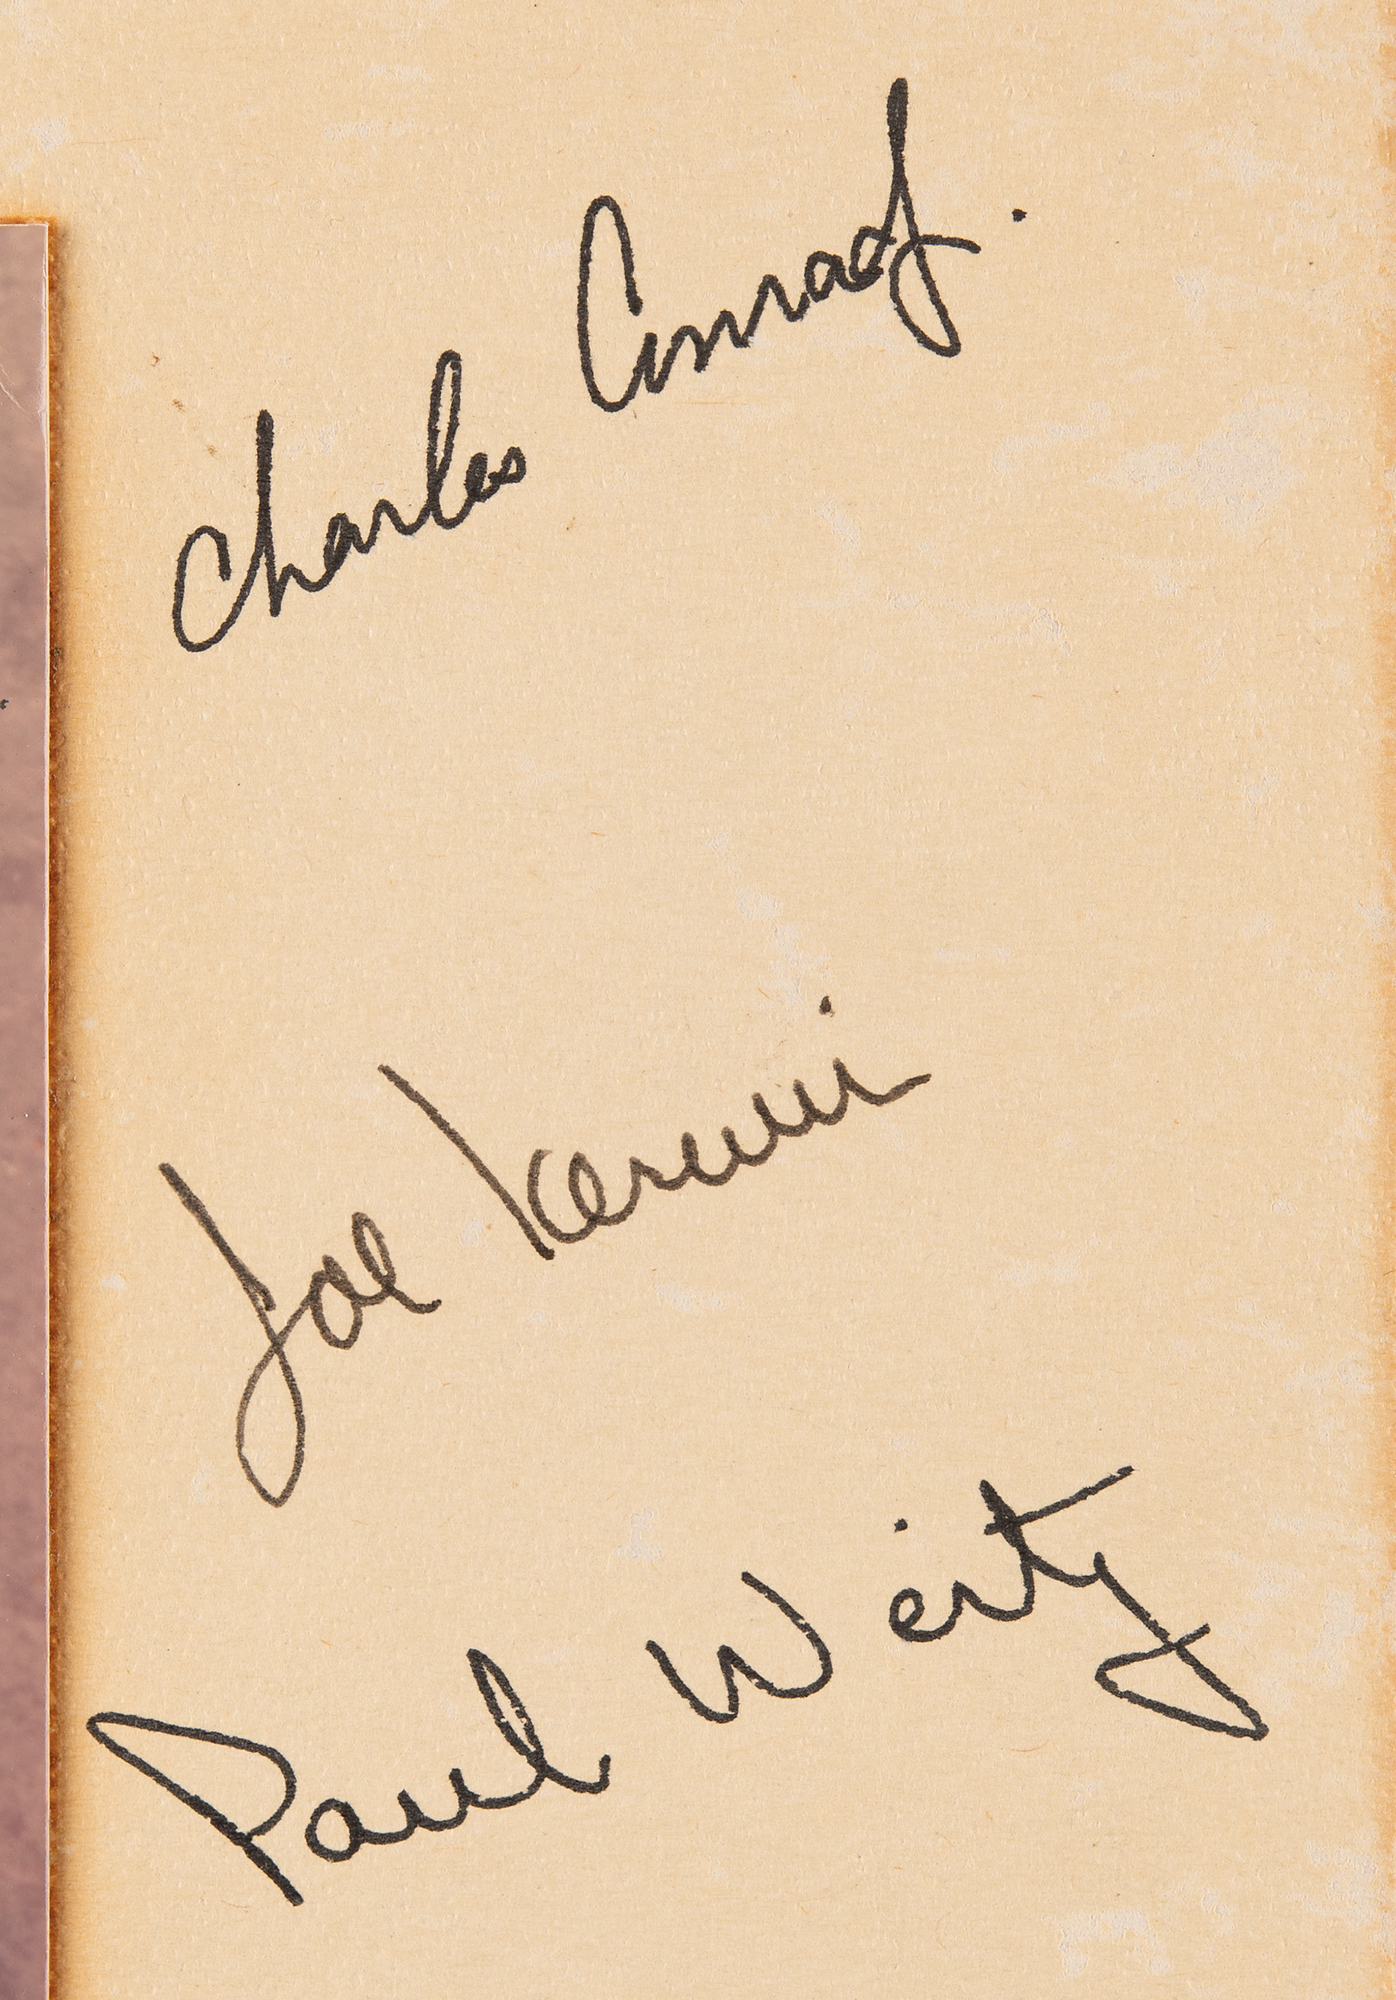 Charles Conrad Jr.
Joe Kerwin
Paul Weitz